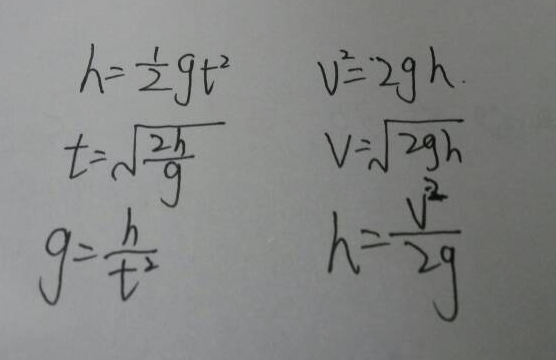 h=½gt² v²=2gh.
t=√(2h/g) v=√(2gh)
g=h/t² h=v²/2g